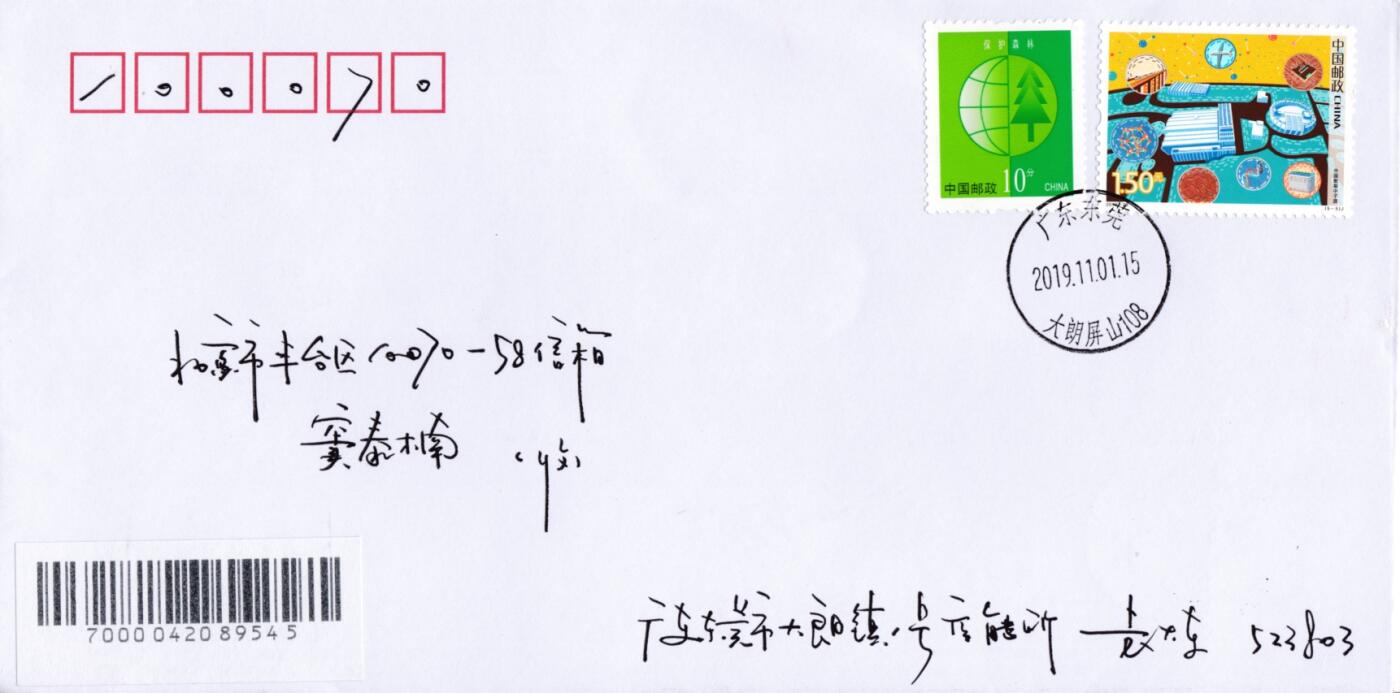 100070
保护森林
中国邮政 10分 CHINA
中国邮政 CHINA
1.50元
广东东莞
2019.11.01.15
大朗屏山108
北京市丰台区100070-58信箱
窦泰楠 (收)
7000042089545
广东东莞市大朗镇1号高能所 大东 523803